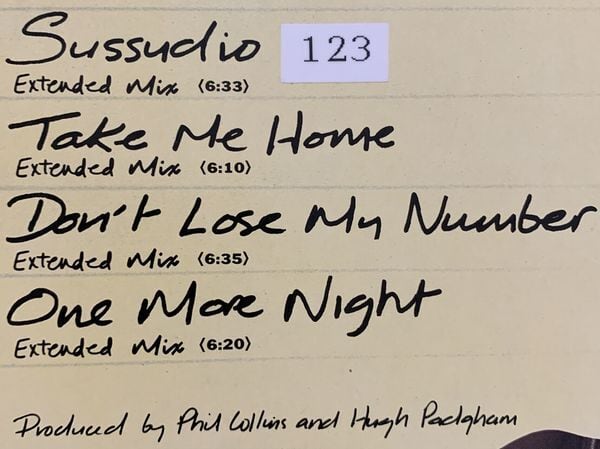 Sussudio 123
Extended Mix (6:33)
Take Me Home
Extended Mix (6:10)
Don't Lose My Number
Extended Mix (6:35)
One More Night
Extended Mix (6:20)
Produced by Phil Collins and Hugh Padgham